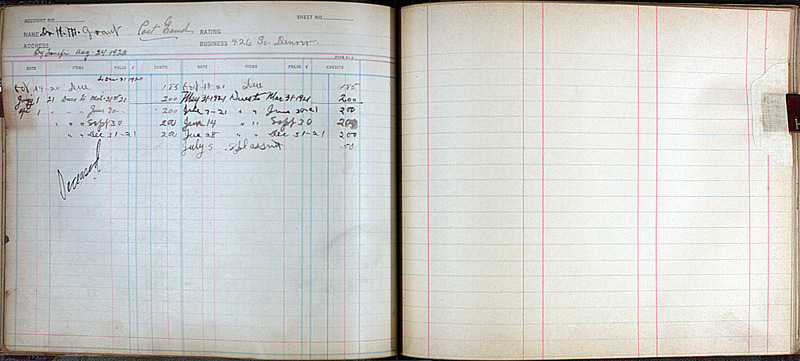 ACCOUNT NO. SHEET NO.
NAME Dr H. M. Grant RATING
ADDRESS BUSINESS 426 So. Denver.
By Transfer Aug. 24 1920
DATE ITEMS FOLIO DEBITS DATE ITEMS FOLIO CREDITS
Dec 31 1920
Oct 19 20 Due 185 Oct 19 21 Due 185
Jany 1 21 Dues to Mch 31st 21 200 May 31 1921 Dues to Mar 31 1921 200
Apr 1 " " June 30 - 200 July 7-21 " " June 30-21 200
" " Sept 30 200 14 " " Sept 30 200
" " Dec 31-21 200 28 " " Dec 31-21 200
July 5 50
Deceased